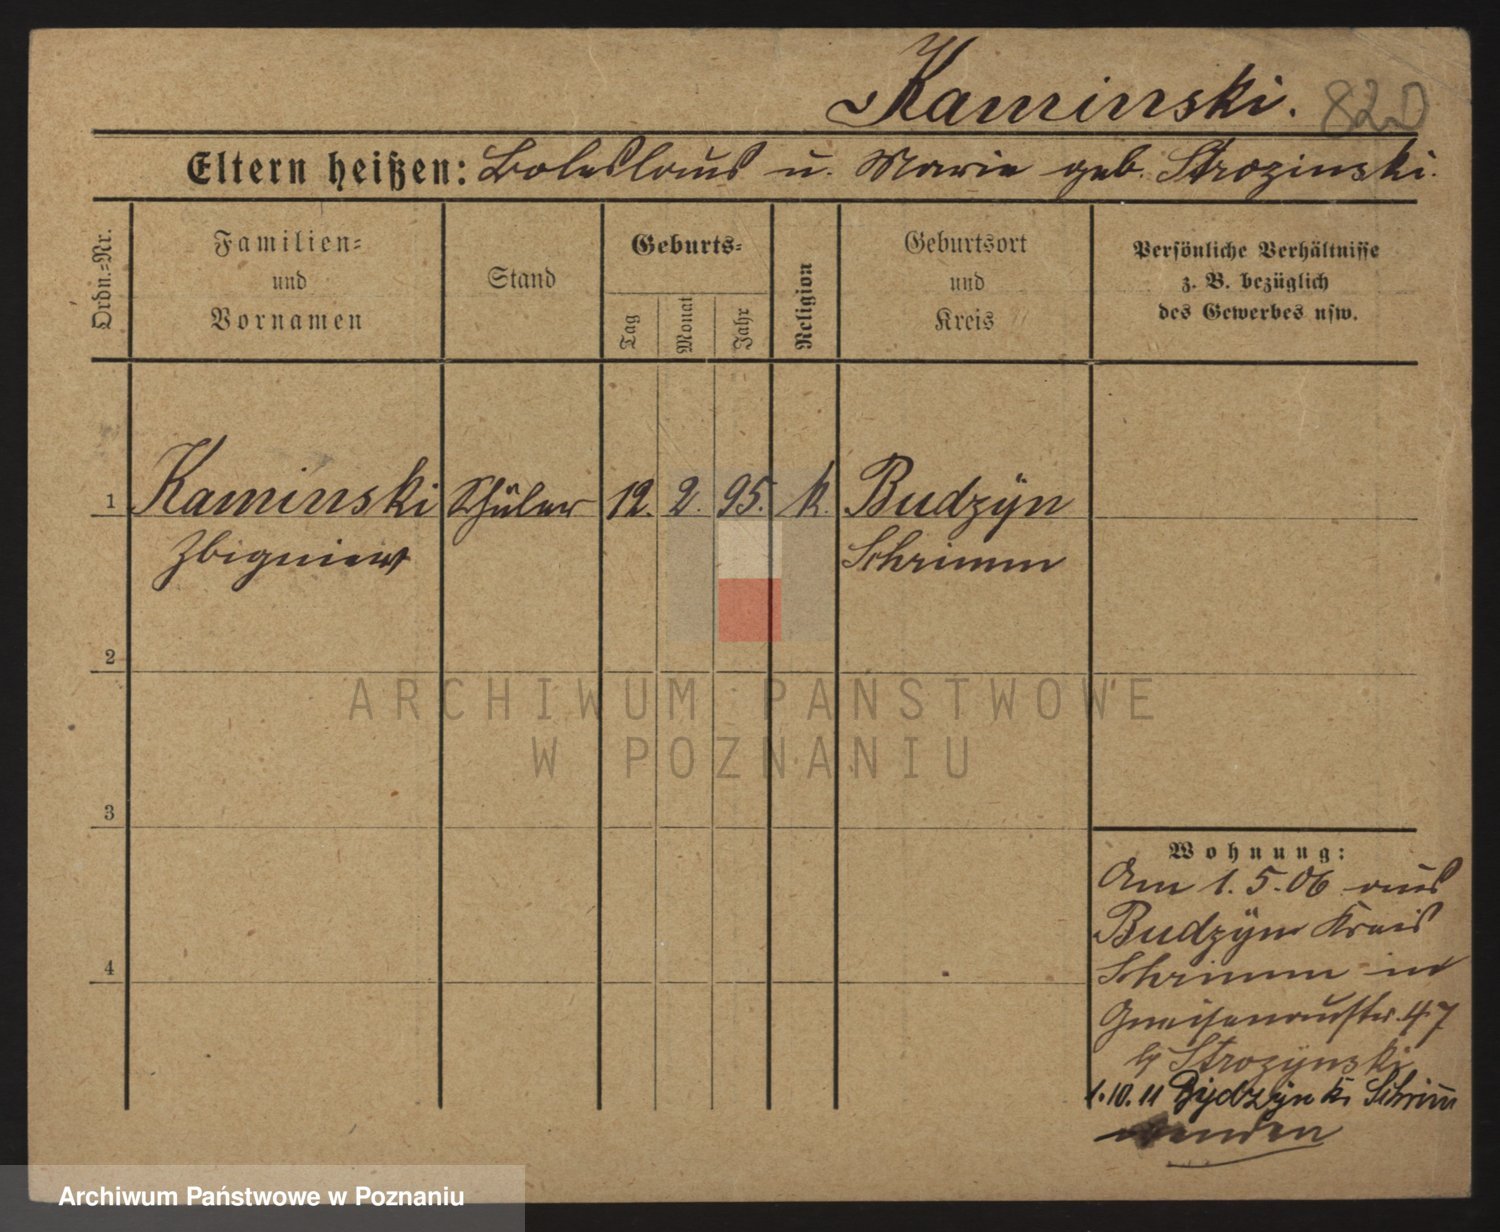 Kaminski. 820
Eltern heißen: Boleslaus u. Marie geb. Strozinski.
Ordn.=Nr.
Familien=
und
Vornamen
Stand
Geburts=
Tag
Monat
Jahr
Religion
Geburtsort
und
Kreis
Persönliche Verhältnisse
z. B. bezüglich
des Gewerbes usw.
1 Kaminski Schüler 12. 2. 95. k. Budzÿn
Zbigniew Schrimm
2
3
4
ARCHIWUM PAŃSTWOWE
W POZNANIU
Wohnung:
Am 1.5.06 aus
Budzÿn Kreis
Schrimm in
Gneisenaustr. 47
b/ Strozÿnski
1.10.11 Bydzÿn K. Schrim̅
wenden
Archiwum Państwowe w Poznaniu